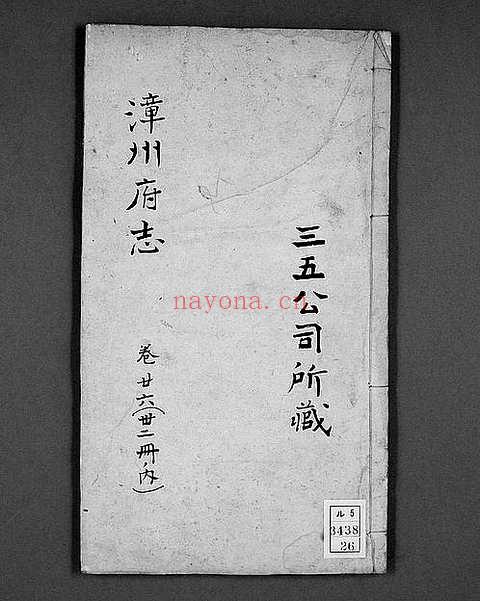 漳州府志
卷廿六(卅二冊內)
三五公司所藏
nayona.cn
ル5
3438
26